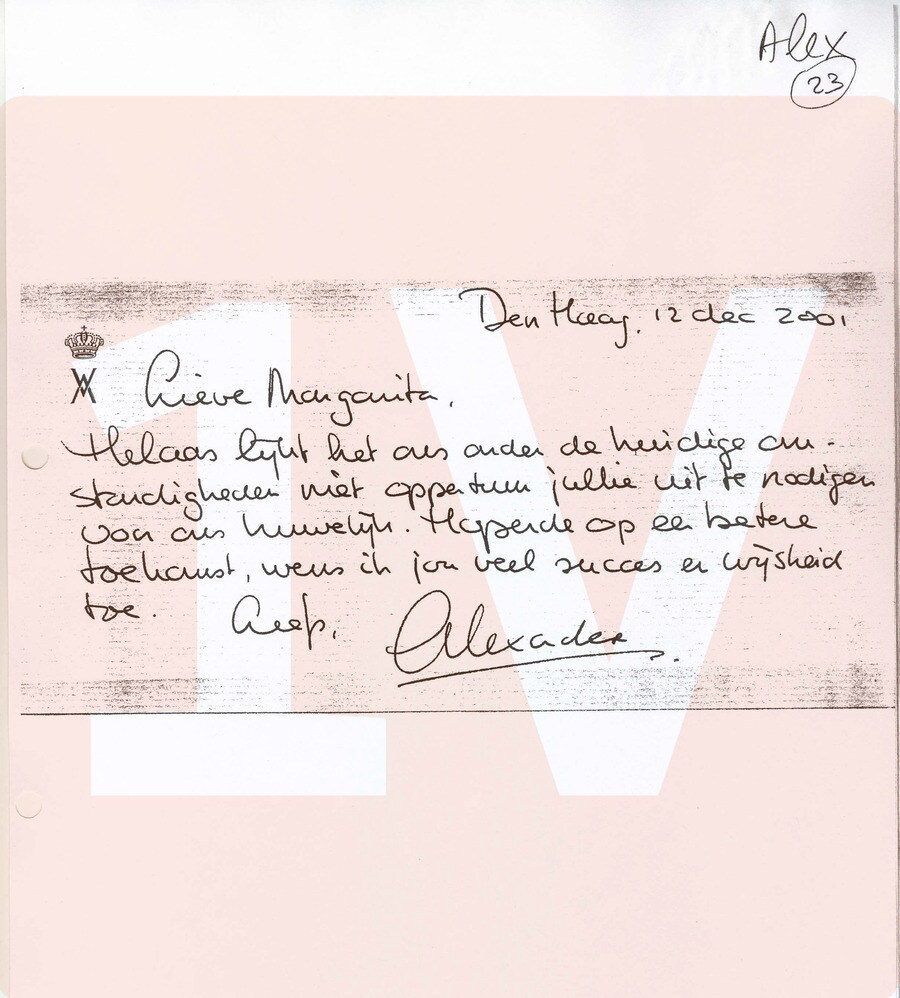 Alex
23
Den Haag, 12 dec 2001
Lieve Margarita,
Helaas lijkt het ons onder de huidige om-
standigheden niet opportuun jullie uit te nodigen
voor ons huwelijk. Hopende op een betere
toekomst, wens ik jou veel succes en wijsheid
toe. Liefs, Alexander
1V